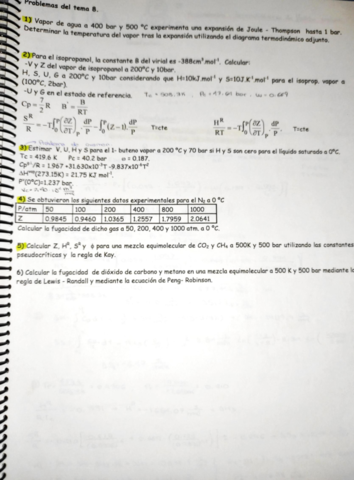 Problemas del tema 8.
1) Vapor de agua a 400 bar y 500 ºC experimenta una expansión de Joule - Thompson hasta 1 bar.
Determinar la temperatura del vapor tras la expansión utilizando el diagrama termodinámico adjunto.
2) Para el isopropanol, la constante B del virial es -388cm³mol⁻¹. Calcular:
-V y Z del vapor de isopropanol a 200ºC y 10bar.
H, S, U, G a 200ºC y 10bar considerando que H=10kJ.mol⁻¹ y S=10J.K⁻¹mol⁻¹ para el isoprop. vapor a
(100ºC, 2bar).
-U y G en el estado de referencia.
Cp = 7/2 R B' = B/RT
S^R/R = -T∫₀ᴾ(∂Z/∂T)_P dP/P - ∫₀ᴾ(Z-1) dP/P T:cte H^R/RT = -T∫₀ᴾ(∂Z/∂T)_P dP/P T:cte
3) Estimar V, U, H y S para el 1- buteno vapor a 200 ºC y 70 bar si H y S son cero para el líquido saturado a 0ºC.
Tc = 419.6 K Pc = 40.2 bar ω = 0.187.
/R = 1.967 +31.630x10⁻³T -9.837x10⁻⁶T²
(273.15K) = 21.75 KJ mol⁻¹.
(0ºC)=1.237 bar
4) Se obtuvieron los siguientes datos experimentales para el N₂ a 0 ºC
P/atm 50 100 200 400 800 1000
Z 0.9845 0.9460 1.0365 1.2557 1.7959 2.0641
Calcular la fugacidad de dicho gas a 50, 200, 400 y 1000 atm. a 0 ºC.
5) Calcular Z, H^R, S^R y ϕ para una mezcla equimolecular de CO₂ y CH₄ a 500K y 500 bar utilizando las constantes
pseudocríticas y la regla de Kay.
6) Calcular la fugacidad de dióxido de carbono y metano en una mezcla equimolecular a 500 K y 500 bar mediante la
regla de Lewis - Randall y mediante la ecuación de Peng- Robinson.